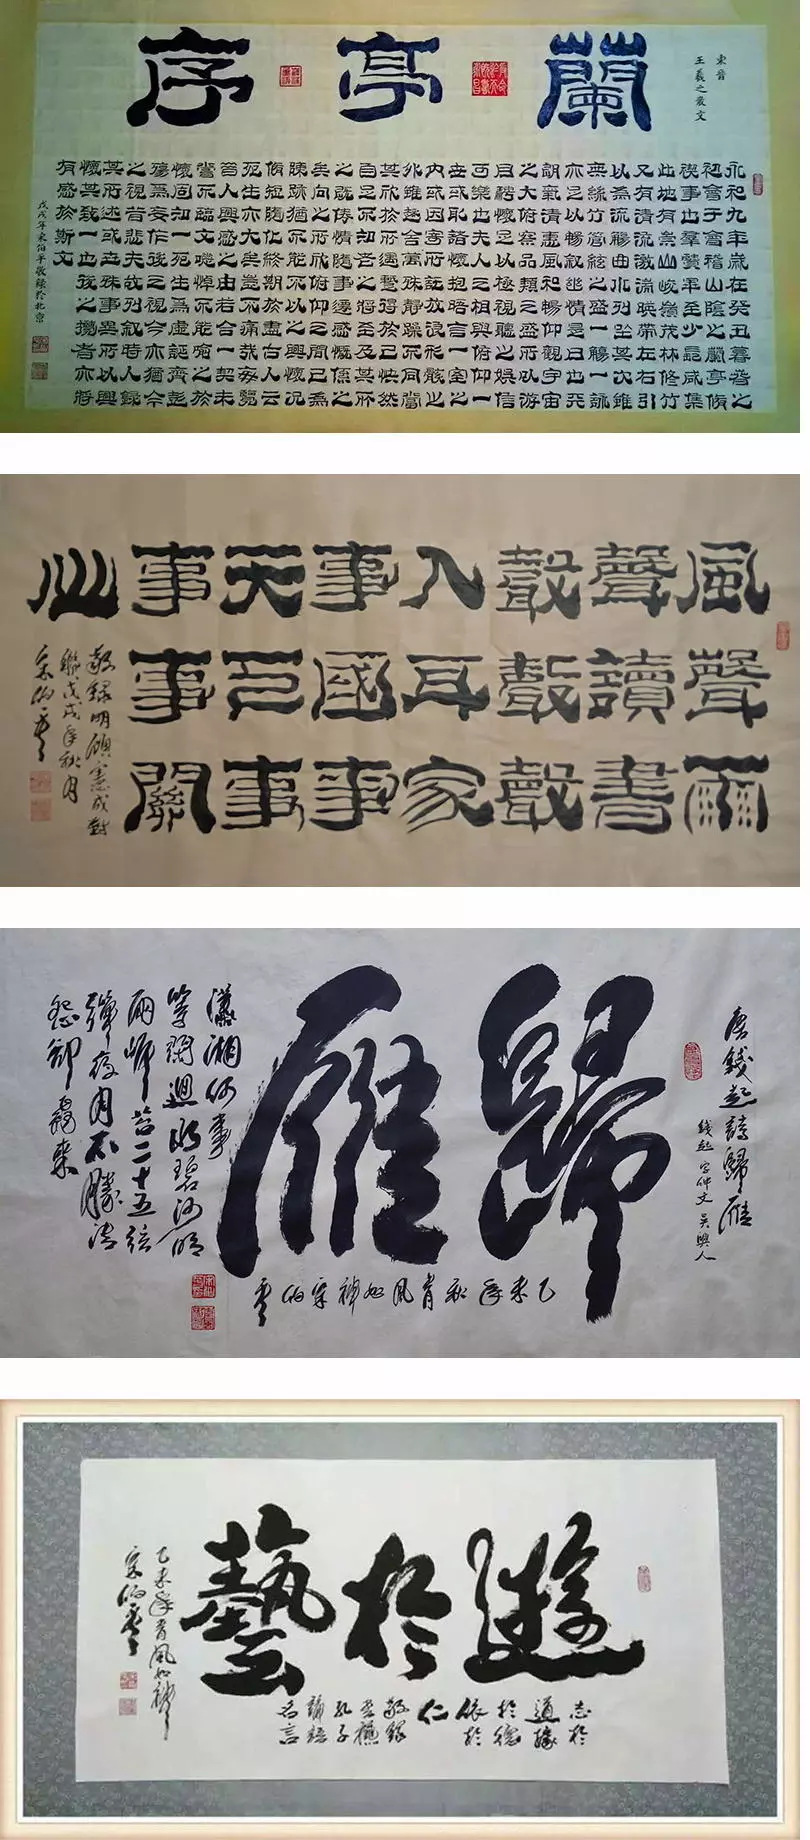 東晉
王羲之散文
蘭亭序
永和九年歲在癸丑暮春之
初會于會稽山陰之蘭亭脩
禊事也群賢畢至少長咸集
此地有崇山峻嶺茂林修竹
又有清流激湍映帶左右引
以為流觴曲水列坐其次雖
無絲竹管絃之盛一觴一詠
亦足以暢敘幽情是日也天
朗氣清惠風和暢仰觀宇宙
之大俯察品類之盛所以游
目騁懷足以極視聽之娛信
可樂也夫人之相與俯仰一
世或取諸懷抱晤言一室之
內或因寄所託放浪形骸之
外雖趣舍萬殊靜躁不同當
其欣於所遇暫得於己怏然
自足不知老之將至及其所
之既倦情隨事遷感慨係之
矣向之所欣俯仰之間已為
陳跡猶不能不以之興懷況
脩短隨化終期於盡古人云
死生亦大矣豈不痛哉每覽
昔人興感之由若合一契未
嘗不臨文嗟悼不能喻之於
懷固知一死生為虛誕齊彭
殤為妄作後之視今亦猶今
之視昔悲夫故列敘時人錄
其所述或世殊事異所以興
懷其致一也後之攬者亦將
有感於斯文
戊戌年宋伯平敬錄於北京
風聲雨
聲讀書
聲聲聲
入耳家
事國事
天下事
事事關
心
敬錄明顧憲成對
聯戊戌年秋月
宋伯平
唐錢起詩歸雁
錢起字仲文吳興人
歸雁
瀟湘何事
等閒迴水碧沙明
兩岸苔二十五弦
彈夜月不勝清
怨卻飛來
乙未年秋肖風如禅宋伯平
遊於藝
志於
道據
於德
依於
仁
敬錄
孔子
論語
名言
乙未年肖風如禅
宋伯平